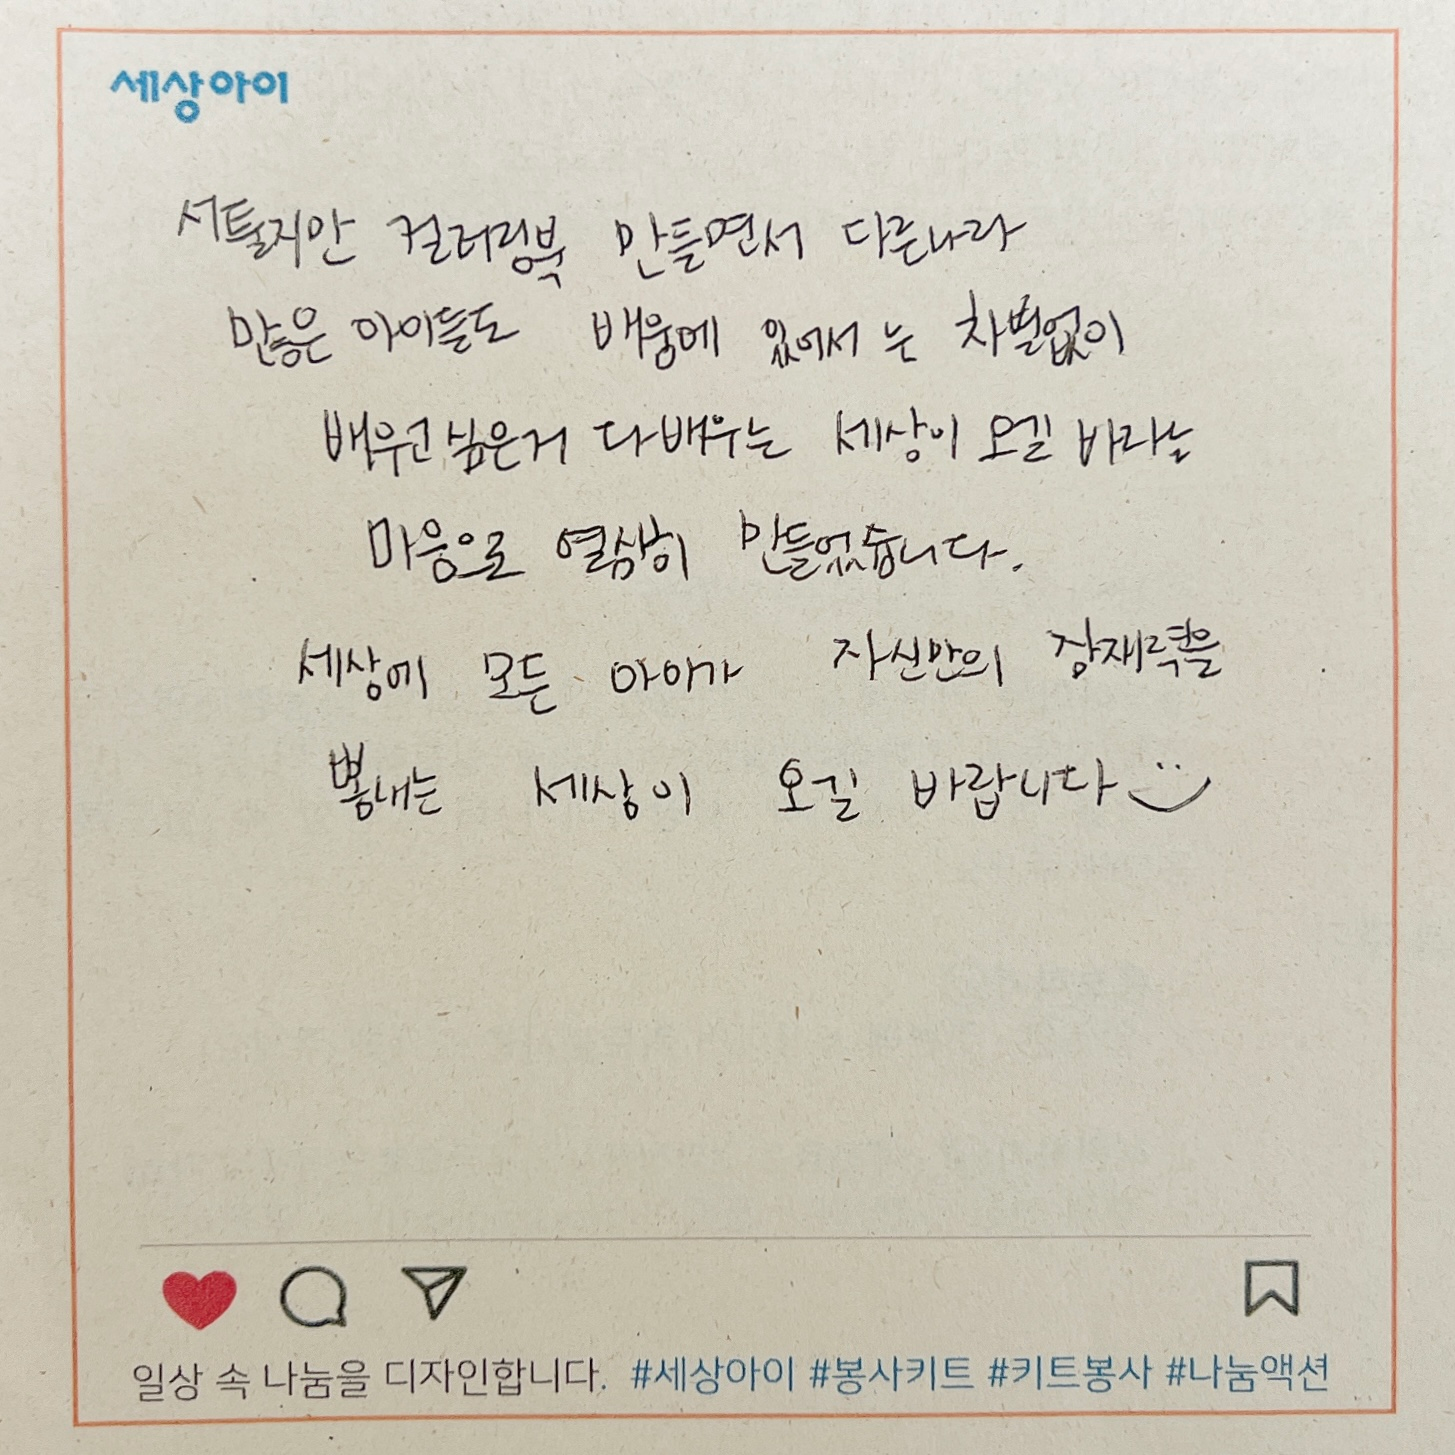 세상아이
서툴지만 컬러링북 만들면서 다른나라
많은 아이들도 배움에 있어서 는 차별없이
배우고 싶은거 다 배우는 세상이 오길 바라는
마음으로 열심히 만들었습니다.
세상에 모든 아이가 자신만의 잠재력을
뽐내는 세상이 오길 바랍니다
일상 속 나눔을 디자인합니다. #세상아이 #봉사키트 #키트봉사 #나눔액션